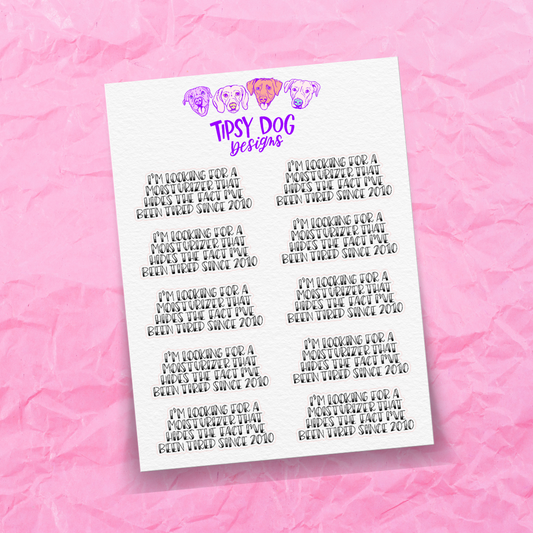 TIPSY DOG
Designs
I'M LOOKING FOR A
MOISTURIZER THAT
HIDES THE FACT I'VE
BEEN TIRED SINCE 2010
I'M LOOKING FOR A
MOISTURIZER THAT
HIDES THE FACT I'VE
BEEN TIRED SINCE 2010
I'M LOOKING FOR A
MOISTURIZER THAT
HIDES THE FACT I'VE
BEEN TIRED SINCE 2010
I'M LOOKING FOR A
MOISTURIZER THAT
HIDES THE FACT I'VE
BEEN TIRED SINCE 2010
I'M LOOKING FOR A
MOISTURIZER THAT
HIDES THE FACT I'VE
BEEN TIRED SINCE 2010
I'M LOOKING FOR A
MOISTURIZER THAT
HIDES THE FACT I'VE
BEEN TIRED SINCE 2010
I'M LOOKING FOR A
MOISTURIZER THAT
HIDES THE FACT I'VE
BEEN TIRED SINCE 2010
I'M LOOKING FOR A
MOISTURIZER THAT
HIDES THE FACT I'VE
BEEN TIRED SINCE 2010
I'M LOOKING FOR A
MOISTURIZER THAT
HIDES THE FACT I'VE
BEEN TIRED SINCE 2010
I'M LOOKING FOR A
MOISTURIZER THAT
HIDES THE FACT I'VE
BEEN TIRED SINCE 2010